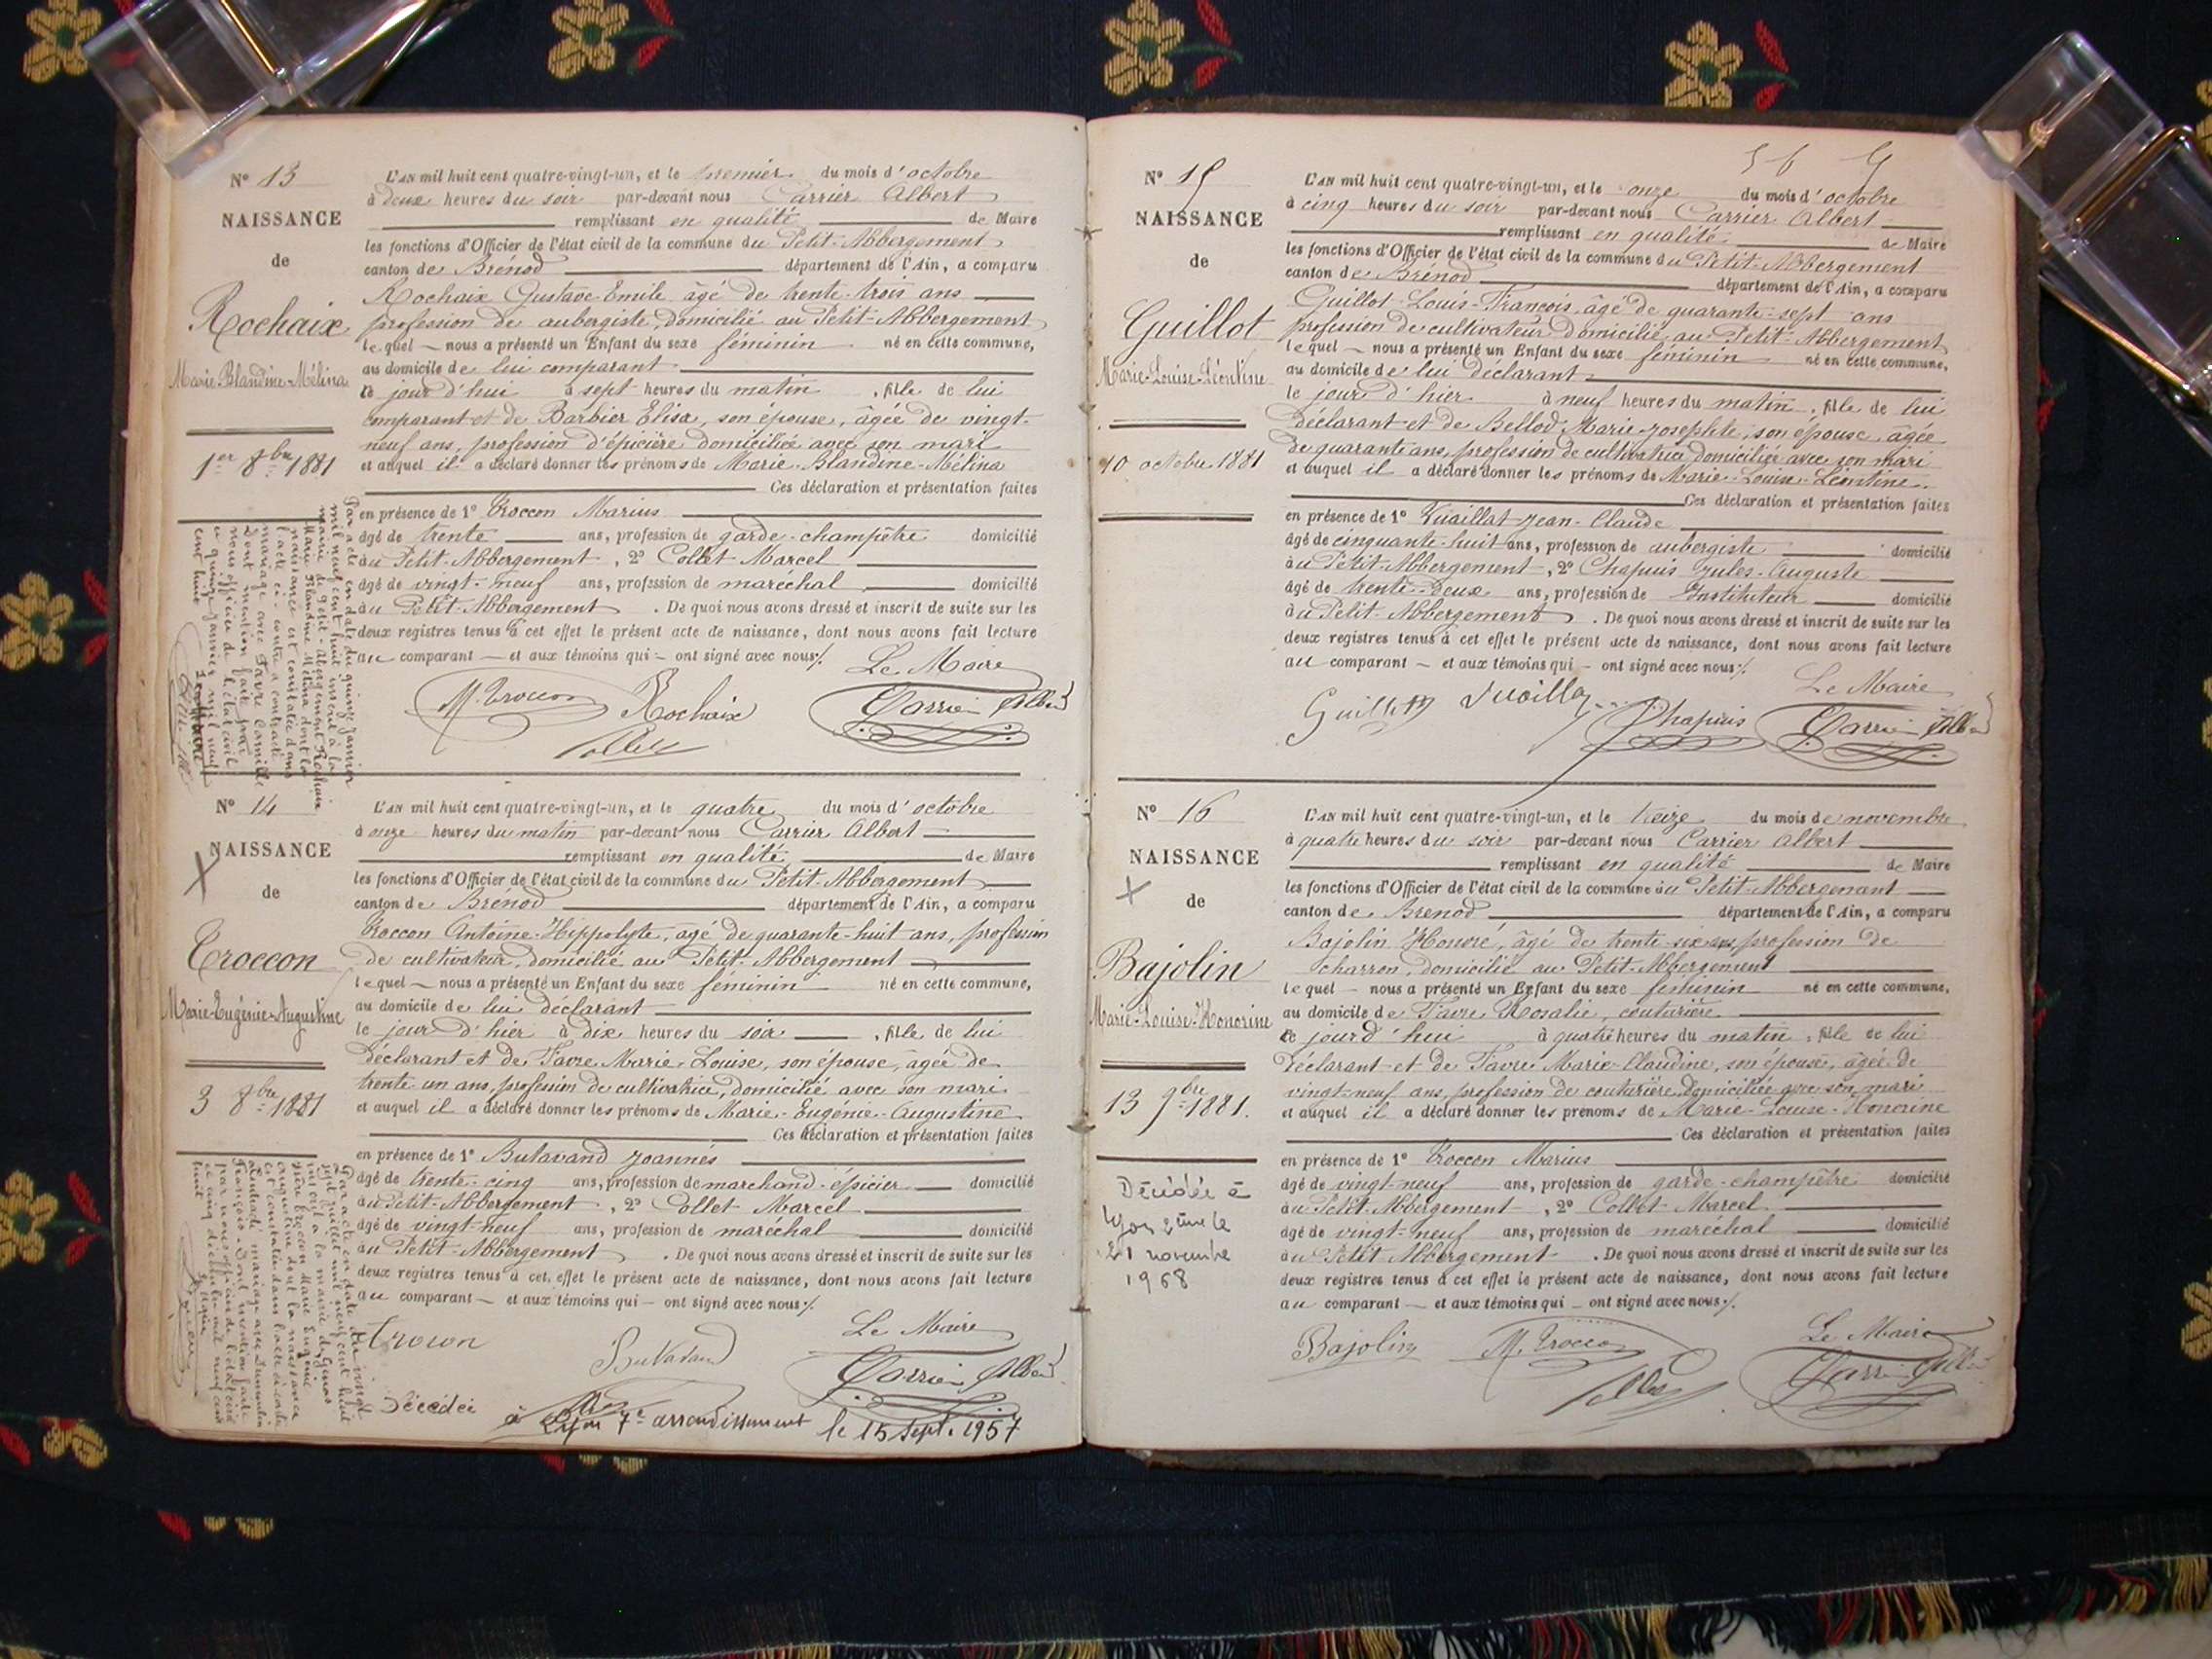 N° 13
NAISSANCE
de
Rochaix
Marie-Blandine-Mélina
1er 8bre 1881
L'AN mil huit cent quatre-vingt-un, et le premier du mois d'octobre
à deux heures du soir par-devant nous Carrier Albert
remplissant en qualité de Maire
les fonctions d'Officier de l'état civil de la commune du Petit-Abbergement
canton de Brénod département de l'Ain, a comparu
Rochaix Gustave Emile âgé de trente-trois ans
profession de aubergiste, domicilié au Petit-Abbergement
lequel nous a présenté un Enfant du sexe féminin né en cette commune,
au domicile de lui comparant
ce jour d'hui à sept heures du matin, fille de lui
comparant et de Barbier Elisa, son épouse, âgée de vingt-
neuf ans, profession d'épicière domiciliée avec son mari
et auquel il a déclaré donner les prénoms de Marie-Blandine-Mélina
Ces déclaration et présentation faites
en présence de 1° Troccon Marius
âgé de trente ans, profession de garde-champêtre domicilié
au Petit-Abbergement, 2° Collet Marcel
âgé de vingt-neuf ans, profession de maréchal domicilié
au Petit-Abbergement. De quoi nous avons dressé et inscrit de suite sur les
deux registres tenus à cet effet le présent acte de naissance, dont nous avons fait lecture
au comparant et aux témoins qui ont signé avec nous ./.
Le Maire
M. Troccon Rochaix Carrier Albert
Collet
Par acte en date du quinze janvier
mil neuf cent huit inscrit à la
mairie de Petit-Abergement Rochaix
Marie Blandine Mélina dont la
naissance est constatée dans
l'acte ci-contre a contracté
mariage avec Favre Camille
Dont mention faite par
nous officier de l'état civil
ce quinze janvier mil neuf
cent huit
Le Maire
N° 14
NAISSANCE
de
Troccon
Marie-Eugénie-Augustine
3 8bre 1881
L'AN mil huit cent quatre-vingt-un, et le quatre du mois d'octobre
à onze heures du matin par-devant nous Carrier Albert
remplissant en qualité de Maire
les fonctions d'Officier de l'état civil de la commune du Petit-Abbergement
canton de Brénod département de l'Ain, a comparu
Troccon Antoine-Hippolyte, âgé de quarante-huit ans, profession
de cultivateur, domicilié au Petit-Abbergement
lequel nous a présenté un Enfant du sexe féminin né en cette commune,
au domicile de lui déclarant
le jour d'hier à dix heures du soir, fille de lui
déclarant et de Favre Marie-Louise, son épouse, âgée de
trente un ans, profession de cultivatrice, domicilié avec son mari
et auquel il a déclaré donner les prénoms de Marie-Eugénie-Augustine
Ces déclaration et présentation faites
en présence de 1° Butavand Joannés
âgé de trente-cinq ans, profession de marchand-épicier domicilié
au Petit-Abbergement, 2° Collet Marcel
âgé de vingt-neuf ans, profession de maréchal domicilié
au Petit-Abbergement. De quoi nous avons dressé et inscrit de suite sur les
deux registres tenus à cet effet le présent acte de naissance, dont nous avons fait lecture
au comparant et aux témoins qui ont signé avec nous ./.
Le Maire
Trocon Butavand Carrier Albert
Décédée à Lyon 7e arrondissement le 15 sept. 1957
Par acte en date du vingt
sept juillet mil neuf cent huit
inscrit à la mairie de
Troccon Marie Eugénie
Augustine dont la naissance
est constatée dans l'acte ci-contre
a contracté mariage avec
François. Dont mention faite
par nous officier de l'état civil
ce cinq mil neuf cent
huit
N° 15
NAISSANCE
de
Guillot
Marie-Louise-Léontine
10 octobre 1881
L'AN mil huit cent quatre-vingt-un, et le onze du mois d'octobre
à cinq heures du soir par-devant nous Carrier Albert
remplissant en qualité de Maire
les fonctions d'Officier de l'état civil de la commune du Petit-Abbergement
canton de Brénod département de l'Ain, a comparu
Guillot Louis-François, âgé de quarante-sept ans
profession de cultivateur domicilié au Petit-Abbergement
lequel nous a présenté un Enfant du sexe féminin né en cette commune,
au domicile de lui déclarant
le jour d'hier à neuf heures du matin, fille de lui
déclarant et de Bellod Marie-Josephte, son épouse, âgée
de quarante ans, profession de cultivatrice domiciliée avec son mari
et auquel il a déclaré donner les prénoms de Marie-Louise-Léontine.
Ces déclaration et présentation faites
en présence de 1° Vuaillat Jean-Claude
âgé de cinquante-huit ans, profession de aubergiste domicilié
au Petit-Abbergement, 2° Chapuis Jules-Auguste
âgé de trente-deux ans, profession de Instituteur domicilié
au Petit-Abbergement. De quoi nous avons dressé et inscrit de suite sur les
deux registres tenus à cet effet le présent acte de naissance, dont nous avons fait lecture
au comparant et aux témoins qui ont signé avec nous ./.
Le Maire
Guillot Vuailla Chapuis Carrier Albert
N° 16
NAISSANCE
de
Bajolin
Marie-Louise-Honorine
13 9bre 1881.
Décédée à
Lyon 2ème le
21 novembre
1968
L'AN mil huit cent quatre-vingt-un, et le treize du mois de novembre
à quatre heures du soir par-devant nous Carrier Albert
remplissant en qualité de Maire
les fonctions d'Officier de l'état civil de la commune du Petit-Abbergement
canton de Brenod département de l'Ain, a comparu
Bajolin Honoré, âgé de trente-six ans, profession de
charron, domicilié au Petit-Abbergement
lequel nous a présenté un Enfant du sexe féminin né en cette commune,
au domicile de Favre Rosalie, couturière
ce jour d'hui à quatre heures du matin, fille de lui
déclarant et de Favre Marie-Claudine, son épouse, âgée de
vingt-neuf ans, profession de couturière domiciliée avec son mari
et auquel il a déclaré donner les prénoms de Marie-Louise-Honorine
Ces déclaration et présentation faites
en présence de 1° Troccon Marius
âgé de vingt-neuf ans, profession de garde-champêtre domicilié
au Petit-Abbergement, 2° Collet Marcel
âgé de vingt-neuf ans, profession de maréchal domicilié
au Petit Abbergement. De quoi nous avons dressé et inscrit de suite sur les
deux registres tenus à cet effet le présent acte de naissance, dont nous avons fait lecture
au comparant et aux témoins qui ont signé avec nous ./.
Le Maire
Bajolin M. Troccon Carrier Albert
Collet